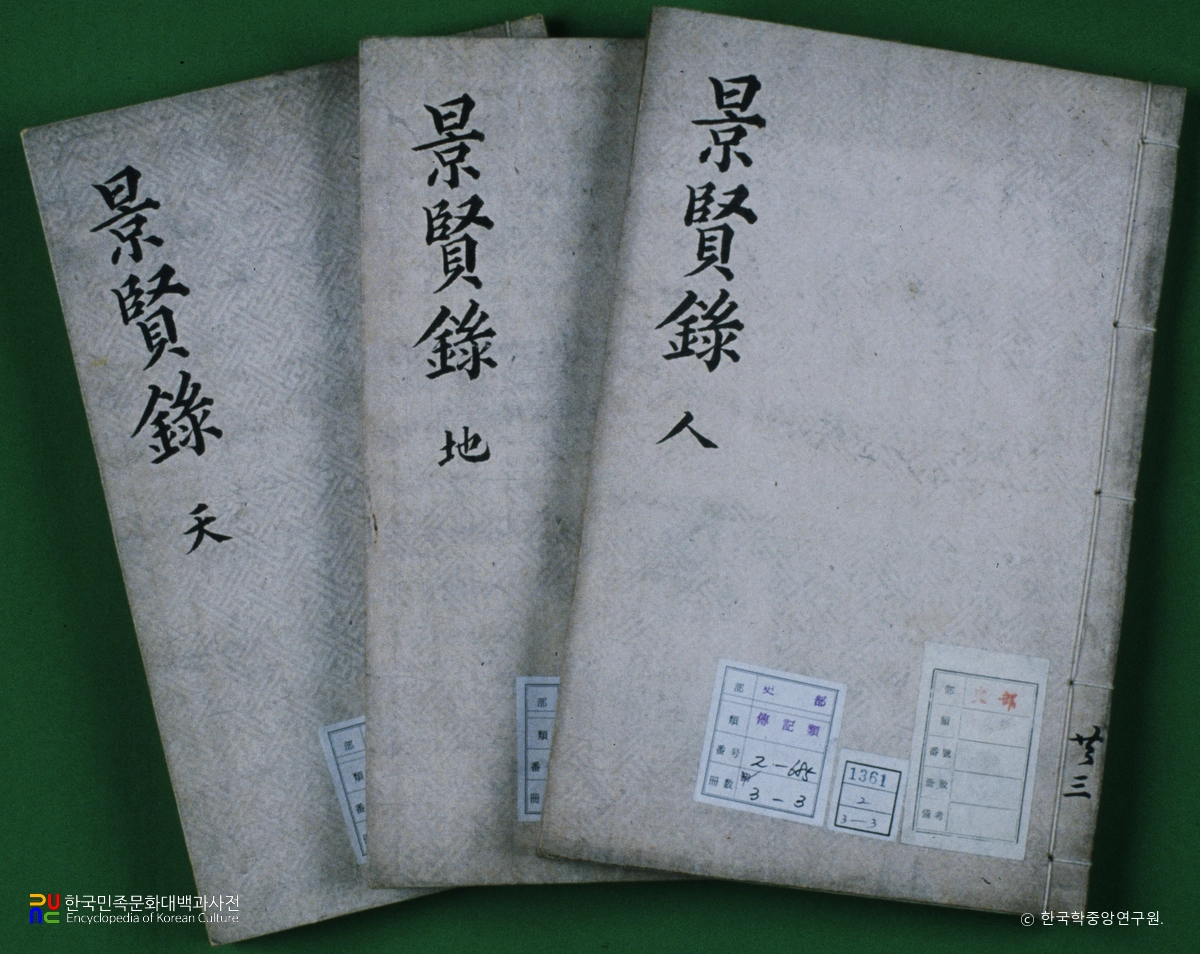 景賢錄
天
景賢錄
地
景賢錄
人
部
類
番
部
類
番
冊
部 史部
類 傳記類
番号 2-685
冊数 3-3
1361
2
3-3
部 史部
類
番號
冊數
備考
共三
한국민족문화대백과사전
Encyclopedia of Korean Culture
ⓒ 한국학중앙연구원.